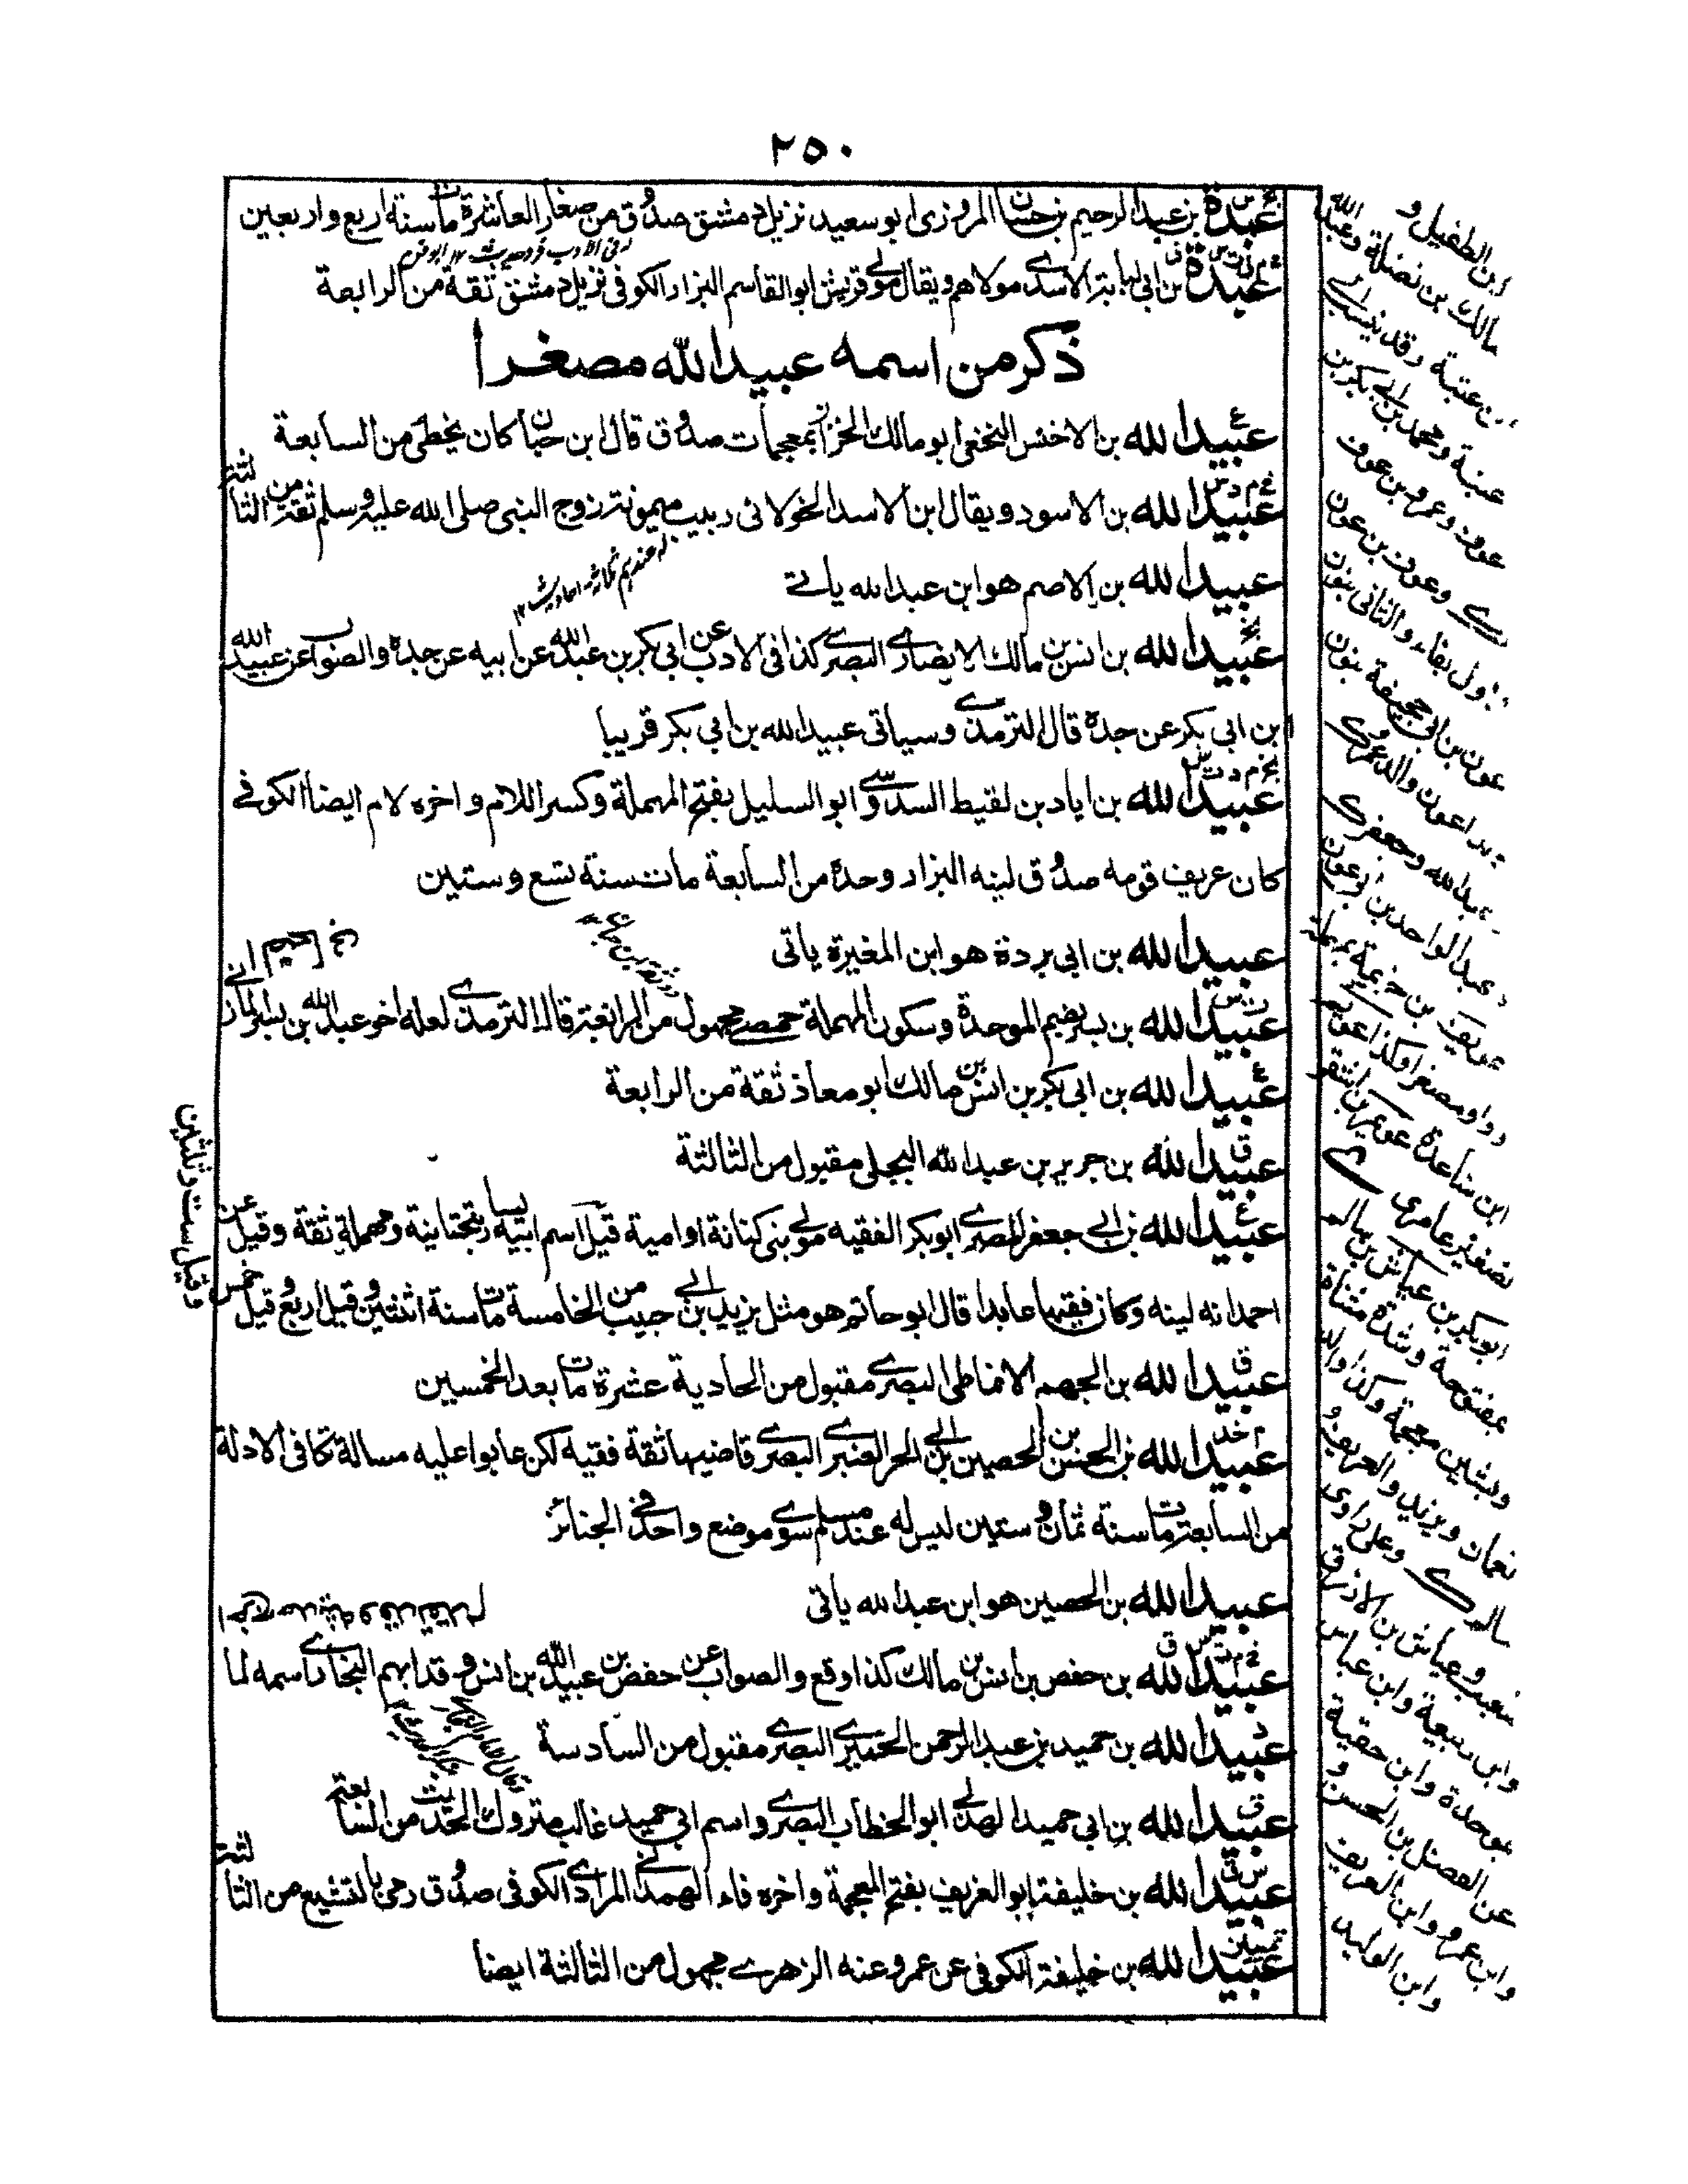 ٢٥٠
عبدة بن عبد الرحيم بن حسان المروزى ابو سعيد نزيل دمشق صدوق من صغار العاشرة مات سنة اربع واربعين
عبدة بن ابي لبابة الاسدى مولاهم ويقال مولى قريش ابو القاسم البزاز الكوفى نزيل دمشق ثقة من الرابعة
ذكر من اسمه عبيد الله مصغرا
عبيد الله بن الاخنس النخعى ابو مالك الخزاز بمعجمات صدوق قال ابن حبان كان يخطئ من السابعة
عبيد الله بن الاسود ويقال ابن الاسد الخولانى ربيب ميمونة زوج النبى صلى الله عليه وسلم ثقة من الثالثة
عبيد الله بن الاصم هو ابن عبد الله ياتى
عبيد الله بن انس بن مالك الانصارى البصرى كذا فى الادب عن ابى بكر بن عبد الله عن ابيه عن جده والصواب عن عبيد الله
بن ابى بكر عن جده قال الترمذى وسياتى عبيد الله بن ابي بكر قريبا
عبيد الله بن اياد بن لقيط السدوسى ابو السليل بفتح المهملة وكسر اللام واخره لام ايضا الكوفى
كان عريف قومه صدوق لينه البزار وحده من السابعة مات سنة تسع وستين
عبيد الله بن ابى بردة هو ابن المغيرة ياتى
عبيد الله بن بسر بضم الموحدة وسكون المهملة حمصى مجهول من الرابعة قال الترمذى لعله اخو عبد الله بن بسر المازنى
عبيد الله بن ابى بكر بن انس بن مالك ابو معاذ ثقة من الرابعة
عبيد الله بن جرير بن عبد الله البجلى مقبول من الثالثة
عبيد الله بن ابى جعفر المصرى ابو بكر الفقيه مولى بنى كنانة او امية قيل اسم ابيه يسار بتحتانية ومهملة ثقة وقيل عن
احمد انه لينه وكان فقيها عابدا قال ابو حاتم هو مثل يزيد بن ابى حبيب من الخامسة مات سنة اثنتين وقيل اربع وقيل خمس
وقيل ست وثلثين
عبيد الله بن الجهم الانماطى البصرى مقبول من الحادية عشرة مات بعد الخمسين
عبيد الله بن الحسن بن الحصين بن ابى الحر العنبرى البصرى قاضيها ثقة فقيه لكن عابوا عليه مسالة تكافى الادلة
من السابعة مات سنة ثمان وستين ليس له عند مسلم سوى موضع واحد فى الجنائز
عبيد الله بن الحصين هو ابن عبد الله ياتى
عبيد الله بن حفص بن انس بن مالك كذا وقع والصواب عن حفص بن عبيد الله بن انس وقد ابهم البخارى اسمه لما
عبيد الله بن حميد بن عبد الرحمن الحميرى البصرى مقبول من السادسة
عبيد الله بن ابي حميد الهذلى ابو الخطاب البصرى واسم ابى حميد غالب متروك الحديث من السابعة
عبيد الله بن خليفة ابو الغريف بفتح المعجمة واخره فاء الهمدانى المرادى الكوفى صدوق رمى بالتشيع من الثالثة
عبيد الله بن خليفة الكوفى عن عمر وعنه الزهرى مجهول من الثالثة ايضا
ابن الطفيل و
مالك بن نضلة وعبد الله
بن عتبة وقد ينسب الى
عتبة ومحمد بن ابى بكر بن
عوف وعمرو بن عوف
وعون بن عون
اول بفاء والثانى بنون
عون بن ابى جحيفة بنون
عبد الله وجعفر
عبد الواحد بن ابى عون
عويف بن خزيمة بمهملة
ابن ساعدة عويمر بن اشقر
تصغير عامر
ابو بكر بن عياش بن سالم
مفتوحة وشدة مثناة
وبشين معجمة وكذا والد
نعمان ويزيد والعريف و
وعياش بن الازرق
وابى ربيعة وابن عباس
موحدة وابن عقبة
عن الفضل بن الحسن و
وابن عمرو وابن العريف
وابن الوليد